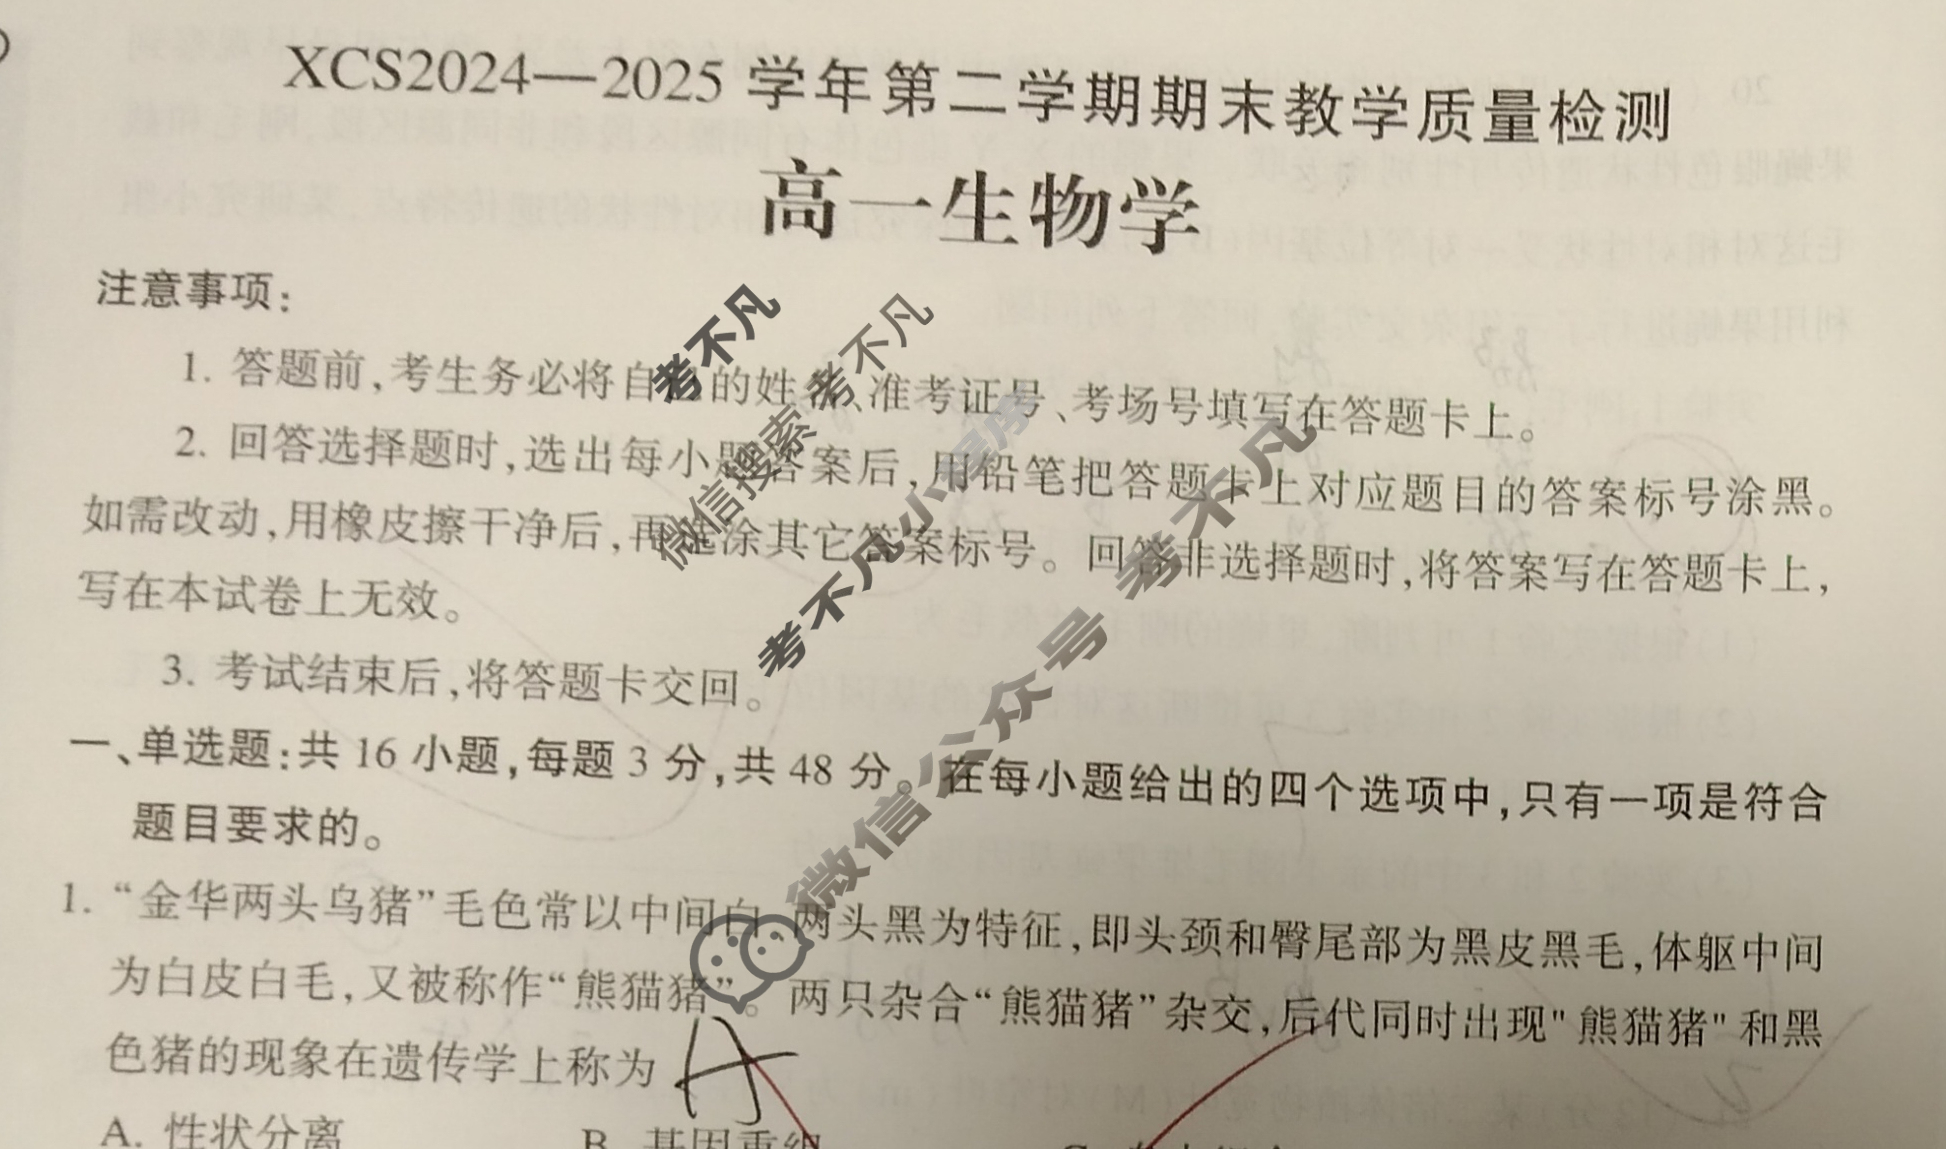 XCS2024—2025 学年第二学期期末教学质量检测
高一生物学
注意事项：
1. 答题前，考生务必将自己的姓名、准考证号、考场号填写在答题卡上。
2. 回答选择题时，选出每小题答案后，用铅笔把答题卡上对应题目的答案标号涂黑。
如需改动，用橡皮擦干净后，再选涂其它答案标号。回答非选择题时，将答案写在答题卡上，
写在本试卷上无效。
3. 考试结束后，将答题卡交回。
一、单选题：共 16 小题，每题 3 分，共 48 分。在每小题给出的四个选项中，只有一项是符合
题目要求的。
1. “金华两头乌猪”毛色常以中间白、两头黑为特征，即头颈和臀尾部为黑皮黑毛，体躯中间
为白皮白毛，又被称作“熊猫猪”。两只杂合“熊猫猪”杂交，后代同时出现"熊猫猪"和黑
色猪的现象在遗传学上称为 A
A. 性状分离 B. 基因重组
考不凡
微信搜索 考不凡
考不凡小程序
微信公众号 考不凡